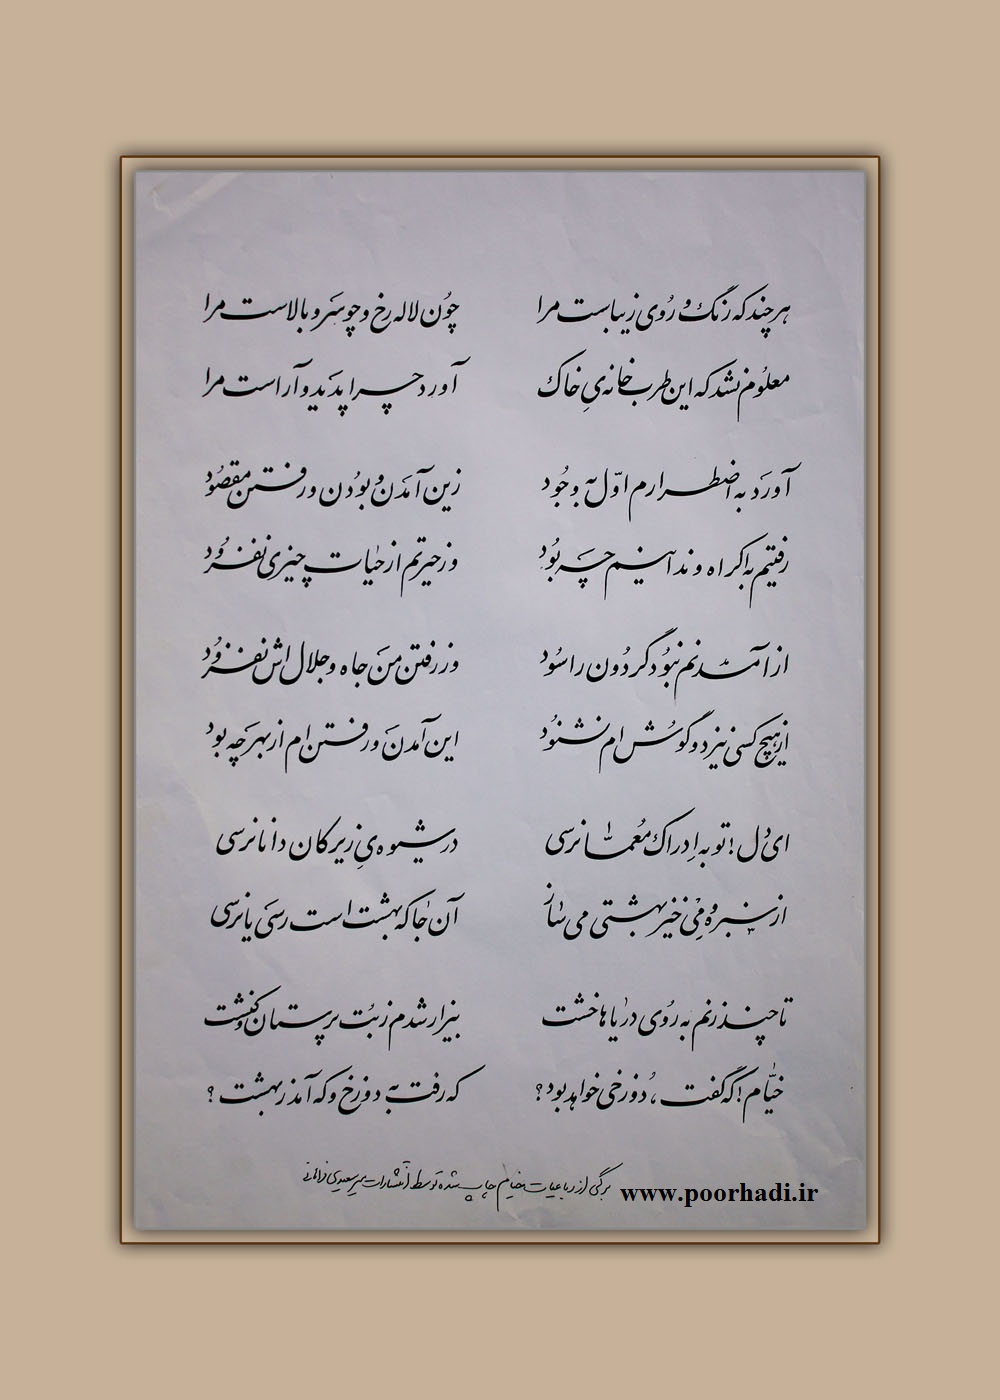 هر چند که رنگ و رُوی زیباست مرا
چُون لاله رخ و چو سَرو بالاست مرا
معلُوم نشد که این طرب خانه‌یِ خاک
آورد چرا پدَید و آراست مرا
آورَد به اضطرارم اوّل به وجُود
زین آمَدن و بودن و رفتن مقصُود
رفتیم به اکراه و ندانیم چَه بُود
وز حیرتم از حیات چیزی نفزُود
از آمدنم نبُود گردُون را سُود
وز رفتن منَ جاه و جلال اش نفزُود
از هیچ کسی نیز دو گوُش ام نشنُود
این آمدنَ و رفتن ام از بهر چَه بود
ای دل! تو به اِدراک مُعمّا نرسی
در شیوه‌یِ زیرکان دانا نرسی
از سبزه و مِی خیز بهشتی می ساز
آن جا که بهشت است رسَی یا نرسی
تا چند زنم بَه رُوی دریاها خشت
بیزار شدم ز بُت پرستان و کنِشت
خیّام! که گفت، دُوزخی خواهد بود؟
که رفت به دوزخ و که آمد ز بهشت؟
برگی از رباعیات خیام چاپ شده توسط انتشارات میرسعیدی فراهانی
www.poorhadi.ir